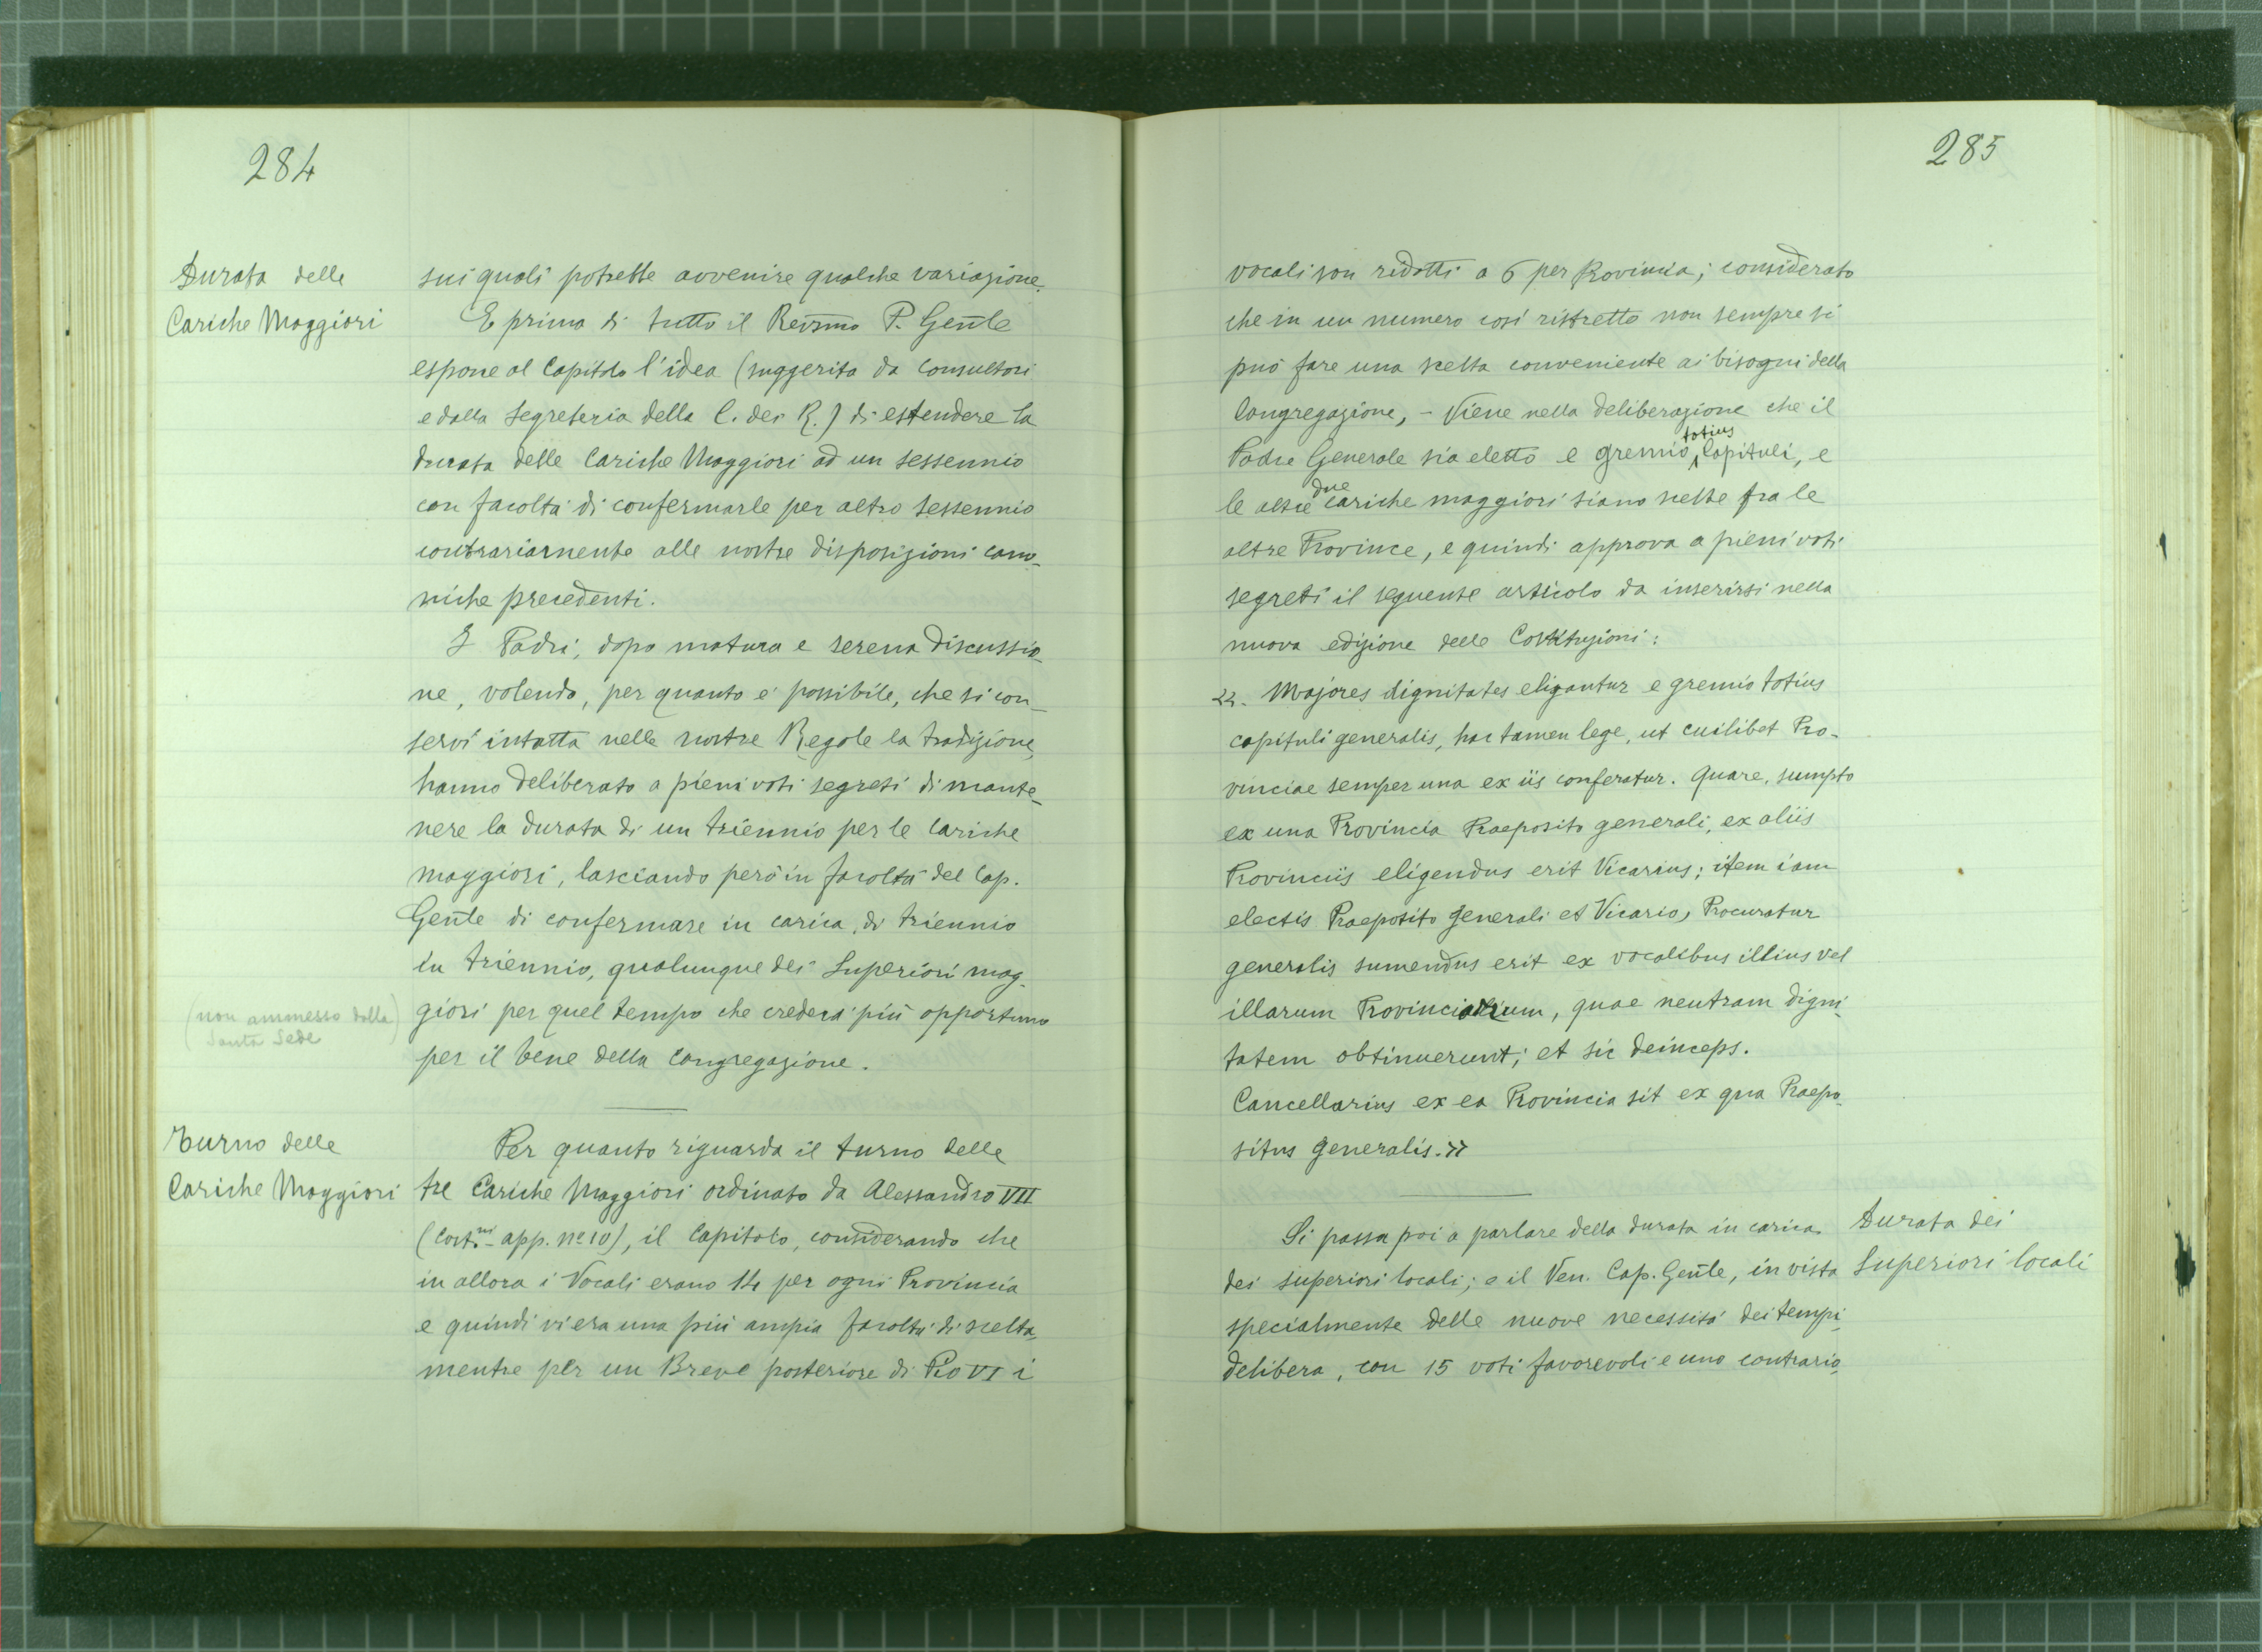 284
Durata delle
Cariche Maggiori
sui quali potrebbe avvenire qualche variazione.
E prima di tutto il Rev̄smo P. Gen̄le
espone al Capitolo l'idea (suggerita da Consultori
e dalla Segreteria della C. dei R.) di estendere la
durata delle Cariche Maggiori ad un sessennio
con facoltà di confermarle per altro sessennio
contrariamente alle nostre disposizioni cano-
niche precedenti.
I Padri, dopo matura e serena discussio-
ne, volendo, per quanto è possibile, che si con-
servi intatta nelle nostre Regole la tradizione,
hanno deliberato a pieni voti segreti di mante-
nere la durata di un triennio per le cariche
maggiori, lasciando però in facoltà del Cap.
Gen̄le di confermare in carica, di triennio
in triennio, qualunque dei Superiori mag-
giori per quel tempo che crederà più opportuno
per il bene della Congregazione.
(non ammesso dalla
Santa Sede)
Turno delle
Cariche Maggiori
Per quanto riguarda il turno delle
tre Cariche Maggiori ordinato da Alessandro VII
(Cost.ni app. nº 10), il Capitolo, considerando che
in allora i Vocali erano 14 per ogni Provincia
e quindi vi era una più ampia facoltà di scelta,
mentre per un Breve posteriore di Pio VI i
285
vocali son ridotti a 6 per Provincia; considerato
che in un numero così ristretto non sempre si
può fare una scelta conveniente ai bisogni della
Congregazione, - Viene nella deliberazione che il
Padre Generale sia eletto e gremio totius Capituli, e
le altre due cariche maggiori siano scelte fra le
altre Province, e quindi approva a pieni voti
segreti il seguente articolo da inserirsi nella
nuova edizione delle Costituzioni:
<<. Majores dignitates eligantur e gremio totius
capituli generalis, hac tamen lege, ut cuilibet Pro-
vinciae semper una ex iis conferatur. Quare, sumpto
ex una Provincia Praeposito generali, ex aliis
Provinciis eligendus erit Vicarius; item iam
electis Praeposito generali et Vicario, Procuratur
generalis sumendus erit ex vocalibus illius vel
illarum Provinciarum, quae neutram digni-
tatem obtinuerunt; et sic deinceps.
Cancellarius ex ea Provincia sit ex qua Praepo-
situs generalis.>>
Durata dei
Superiori locali
Si passa poi a parlare della durata in carica
dei superiori locali; e il Ven. Cap. Gen̄le, in vista
specialmente delle nuove necessità dei tempi,
delibera, con 15 voti favorevoli e uno contrario,